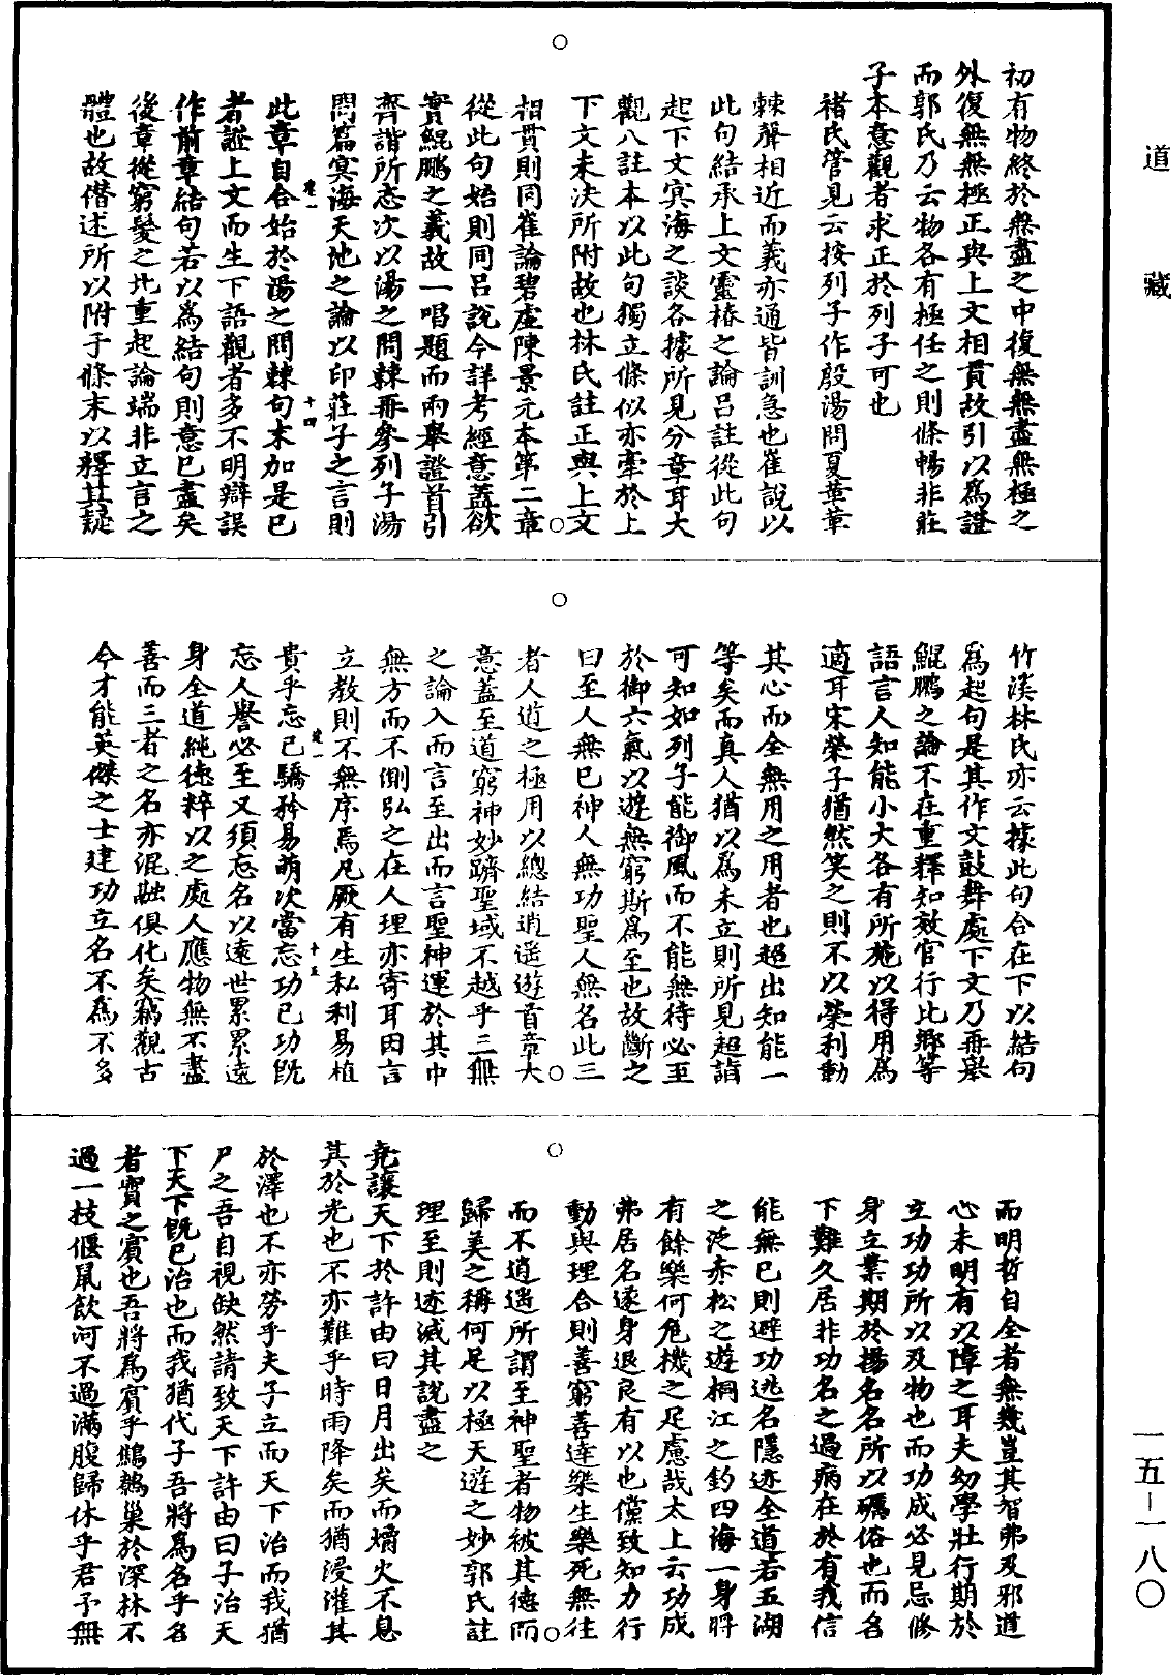 道藏
初有物終於無盡之中復無無盡無極之
外復無無極正與上文相貫故引以為證
而郭氏乃云物各有極任之則條暢非莊
子本意觀者求正於列子可也
褚氏管見云按列子作殷湯問夏革革
棘聲相近而義亦通皆訓急也崔說以
此句結承上文靈椿之論呂註從此句
起下文㝠海之談各據所見分章耳大
觀八註本以此句獨立條似亦牽於上
下文未決所附故也林氏註正與上文
相貫則同崔論碧虛陳景元本第二章
從此句始則同呂說今詳考經意蓋欲
實鯤鵬之義故一唱題而兩舉證首引
齊諧所志次以湯之問棘再參列子湯
問篇㝠海天池之論以印莊子之言則
此章自合始於湯之問棘句末加是已
者證上文而生下語觀者多不明辯誤
作前章結句若以為結句則意已盡矣
後章從窮髮之北重起論端非立言之
體也故僭述所以附于條末以釋其疑
竹溪林氏亦云據此句合在下以結句
為起句是其作文鼓舞處下文乃再舉
鯤鵬之論不在重釋知效官行比鄉等
語言人知能小大各有所施以得用為
適耳宋榮子猶然笑之則不以榮利動
其心而全無用之用者也超出知能一
等矣而真人猶以為未立則所見超詣
可知如列子能御風而不能無待必至
於御六氣以遊無窮斯為至也故斷之
曰至人無已神人無功聖人無名此三
者人道之極用以總結逍遥遊首章大
意蓋至道窮神妙躋聖域不越乎三無
之論入而言至出而言聖神運於其中
無方而不側弘之在人理亦寄耳因言
立教則不無序焉凡厥有生私利易植
貴乎忘已驕矜易萌次當忘功已功既
忘人譽必至又須忘名以遠世累累遠
身全道純德粹以之處人應物無不盡
善而三者之名亦混融俱化矣竊觀古
今才能英傑之士建功立名不為不多
而明哲自全者無幾豈其智弗及邪道
心未明有以障之耳夫幼學壯行期於
立功功所以及物也而功成必見忌修
身立業期於揚名名所以礪俗也而名
下難久居非功名之過病在於有我信
能無已則避功逃名隱迹全道若五湖
之泛赤松之遊桐江之釣四海一身將
有餘樂何危機之足慮哉太上云功成
弗居名遂身退良有以也儻致知力行
動與理合則善窮善達樂生樂死無往
而不逍遥所謂至神聖者物被其德而
歸美之稱何足以極天遊之妙郭氏註
理至則迹滅其說盡之
堯讓天下於許由曰日月出矣而爝火不息
其於光也不亦難乎時雨降矣而猶浸灌其
於澤也不亦勞乎夫子立而天下治而我猶
尸之吾自視缺然請致天下許由曰子治天
下天下既已治也而我猶代子吾將為名乎名
者實之賓也吾將為賓乎鷦鷯巢於深林不
過一枝偃鼠飲河不過滿腹歸休乎君予無
一五—一八〇